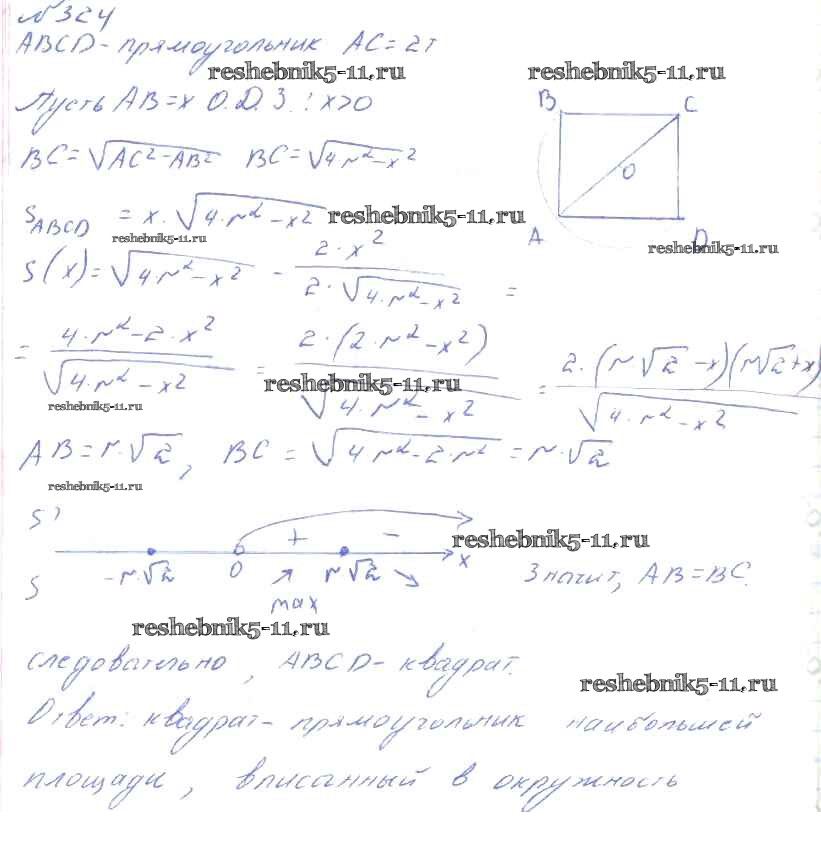 №324
ABCD - прямоугольник AC = 2r
reshebnik5-11.ru reshebnik5-11.ru
Пусть AB = x О.Д.З.: x>0
B C
BC = √(AC² - AB²) BC = √(4·r² - x²)
O
S_ABCD = x·√(4·r² - x²) reshebnik5-11.ru
reshebnik5-11.ru A D reshebnik5-11.ru
S'(x) = √(4·r² - x²) - (2·x²)/(2·√(4·r² - x²)) =
= (4·r² - 2·x²)/√(4·r² - x²) = (2·(2·r² - x²))/√(4·r² - x²) = (2·(r√2 - x)(r√2 + x))/√(4·r² - x²)
reshebnik5-11.ru
reshebnik5-11.ru
AB = r·√2, BC = √(4r² - 2·r²) = r·√2
reshebnik5-11.ru
S' + - reshebnik5-11.ru
S -r·√2 0 r√2 x Значит, AB = BC.
max
reshebnik5-11.ru
следовательно, ABCD - квадрат.
reshebnik5-11.ru
Ответ: квадрат - прямоугольник наибольшей
площади, вписанный в окружность